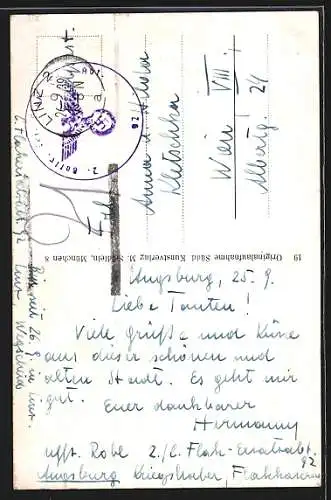 Augsburg, 25. 9.
Liebe Tanten!
Viele Grüße und Küsse
aus dieser schönen und
alten Stadt. Es geht mir
gut.
Euer dankbarer
Hermann
2./l. Flak-Ersatzabt.
92
Augsburg Kriegshaber, Flakkaserne
Bin seit 26. 9. in Linz.
Linz, Wegscheid
Anna u. Hilda
Kletschka
Wien VIII.,
Albertg. 24
LINZ
92
19 Originalaufnahme Südd. Kunstverlag M. Seidlein, München 8